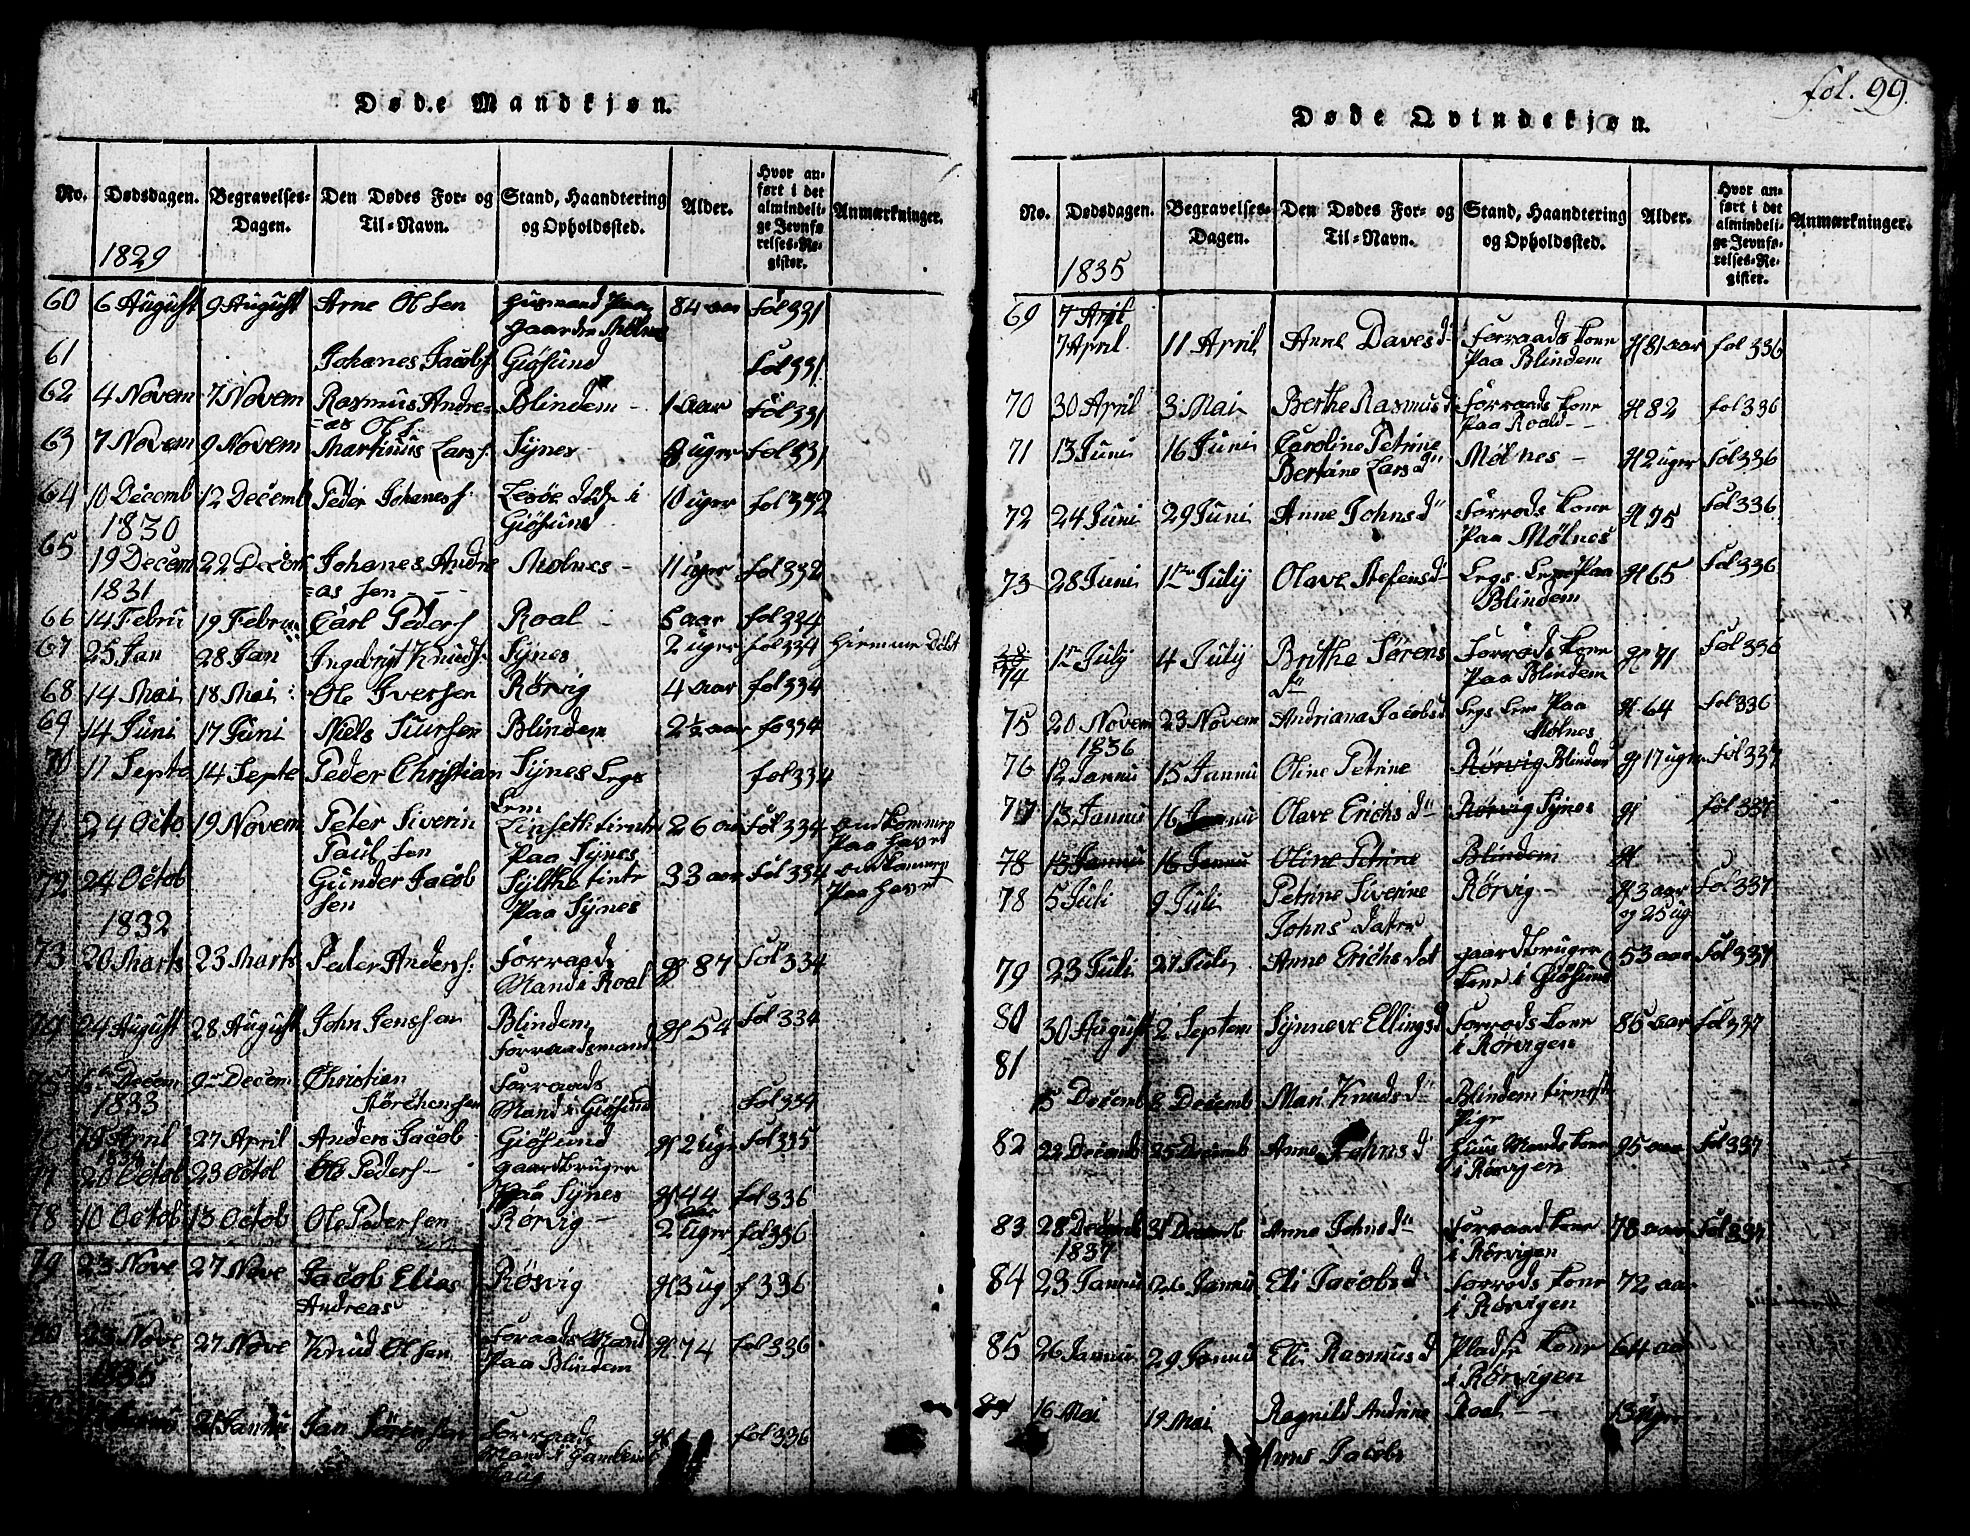 fol. 99.
Døde Mandkjøn.
No. Dødsdagen. Begravelses-Dagen. Den Dødes For- og Til-Navn. Stand, Haandtering og Opholdssted. Alder. Hvor anført i det almindelige Jevnførelses-Register. Anmærkninger.
1829
60 6 August 9 August Arne Olsen Husmand Paa 84 aar fol 331
Gaarden Mölnes
61 Johanes Jacobs Giösund fol 331
62 4 Novem 7 Novem Rasmus Andre= Blindem - 1 aar fol 331
=as Ols
63 7 Novem 9 Novem Martinus Larss. Synes 8 uger fol 331
64 10 Decemb 12 Decemb Peder Johaness. döde i 10 uger fol 332
1830 Giösund
65 19 Decem 22 Decem Johanes Andre Molnes - 11 uger fol 332
1831 =as sen - -
66 14 Febru 19 Febru Carl Peders Roal - 5 aar fol 334
67 25 Jan 28 Jan Ingebrigt Knuds Synes 2 uger fol 334 Hiemme Döbt
68 14 Mai 18 Mai Ole Iversen Rörvig 4 aar fol 334
69 14 Juni 17 Juni Niels Siursen Blindem 2½ aar fo 334
70 11 Septe 14 Septe Peder Christian Synes Legs fol 334
Lem
71 24 Octo 19 Novem Peter Siverin tient 26 aar fol 334 omkommen
Paul sen Paa Synes Paa Havet
72 24 Octob Gunder Jacob Sylthe tient 33 aar fol 334 omkommen
sen Paa Synes Paa Havet
1832
73 20 Marts 23 Marts Peder Anderss: Forraads 87 fol 334
Mand i Roal
74 24 August 28 August John Jenssen Blindem 54 fol 334
Forraadsmand
75 Decem 9 Decem Christian Forraads
1833 Mand i Giösund fol 334
19 April 27 April Anders Jacob Giösund 2 uger fol 335
1834
77 20 Octob 23 Octob Ole Peders - gaardbruger
Paa Synes 44 fol 336
aar
78 10 Octob 13 Octob Ole Pedersen Rörvig - 2 Uger fol 336
79 23 Nove 27 Nove Jacob Elias Rösvig 3 ug f 336
Andreas
80 23 Nove 27 Nove Knud Olsen Foraads Mand 74 fol 336
1835 Paa Blindem
21 Jannu Jan Sörensen Forraads fol 336
Mand i
Døde Qvindekjøn.
No. Dødsdagen. Begravelses-Dagen. Den Dødes For- og Til-Navn. Stand, Haandtering og Opholdssted. Alder. Hvor anført i det almindelige Jevnførelses-Register. Anmærkninger.
1835
69 7 April
7 April 11 April Anne Daves d- Forraads kone 81 aar fol 336
Paa Blindem
70 30 April 3 Mai Berthe Rasmus d Forraads kone 82 fol 336
Paa Roald - -
71 13 Juni 16 Juni Caroline Petrine Mölnes - 2 uger fol 336
Bertine Lars d"
72 24 Juni 29 Juni Anne Johns d" Forrods kone 75 fol 336
Paa Mölnes
73 28 Juni 1 July Olave Stefens d- Legs Lem Paa 65 fol 336
Blindem
74 1 July 4 July Brithe Sörens Forrods kone 71 fol 336
d" Paa Blindem
75 20 Novem 23 Novem Andriana Jacobs d Legs Lem Paa 64 fol 336
1836 Mölnes
76 12 Jannu 15 Jannu Oline Petrine Rörvig Blindem 17 uger fol 337
77 13 Jannu 16 Jannu Olave Erichs d" Rörvig Synes fol 337
78 13 Jannu 16 Jannu Oline Petrine Blindem
78 5 Juli 9 Juli Petrine Siverine Rörvig - 3 aar fol 337
Johns datter og 25 ug
79 23 Juli 27 Juli Anne Erichs dat gaardbruger 53 aar fol 337
kone i Giösund
80 30 August 2 Septem Synneve Ellings d Forrods kone 85 aar fol 337
i Rörvigen
81 5 Decemb 8 Decemb Mari Knuds d" Blindem tienest
Pige
82 22 Decemb 25 Decemb Anne Johns d Huus Mands kone 95 aar fol 337
i Rörvigen
83 28 Decemb 31 Decemb Anne Johns d" Forraad kone 78 aar fol 337
1837 i Rörvigen
84 23 Jannu 26 Jannu Eli Jacobs d Forrods kone 72 aar
i Rörvigen
85 26 Jannu 29 Jannu Eli Rasmus d kone 64 aar
i Rörvigen
16 Mai 19 Mai Ragnild Andrine Roal - - 13 uger
Jacobs